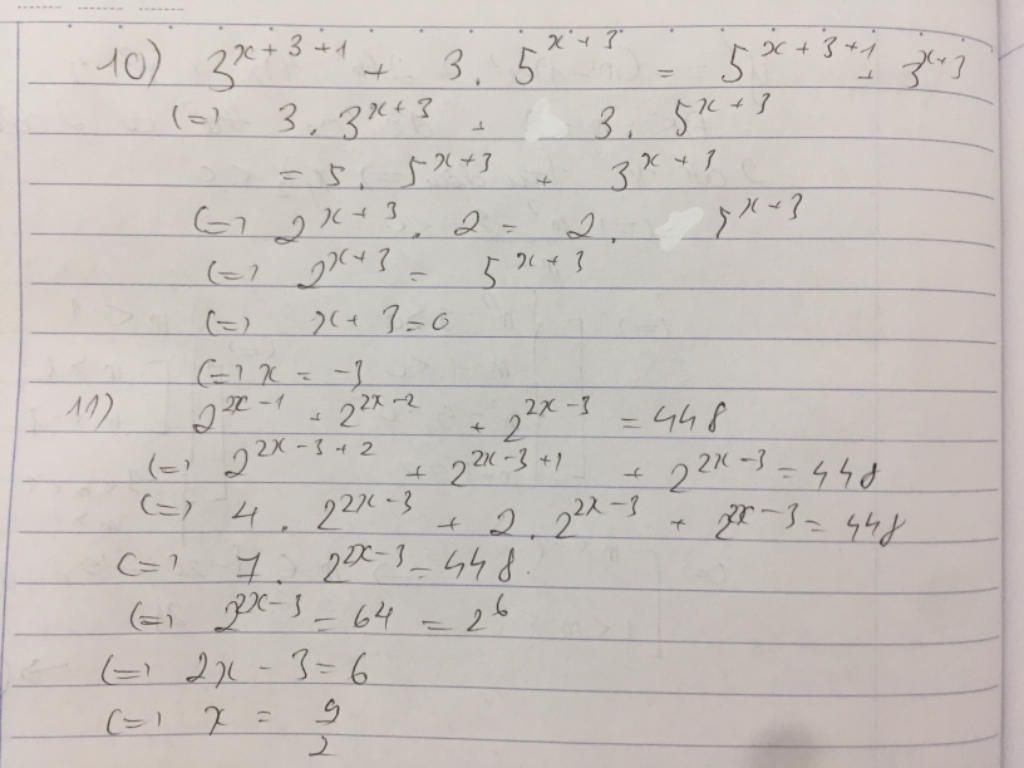 10) 3^{x+3+1} + 3 . 5^{x+3} = 5^{x+3+1} + 3^{x+3}
(=) 3 . 3^{x+3} + 3 . 5^{x+3}
= 5 . 5^{x+3} + 3^{x+3}
(=) 2^{x+3} . 2 = 2 . 5^{x+3}
(=) 2^{x+3} = 5^{x+3}
(=) x + 3 = 0
(=) x = -3
11) 2^{2x-1} + 2^{2x-2} + 2^{2x-3} = 448
(=) 2^{2x-3+2} + 2^{2x-3+1} + 2^{2x-3} = 448
(=) 4 . 2^{2x-3} + 2 . 2^{2x-3} + 2^{2x-3} = 448
(=) 7 . 2^{2x-3} = 448.
(=) 2^{2x-3} = 64 = 2^6
(=) 2x - 3 = 6
(=) x = 9/2